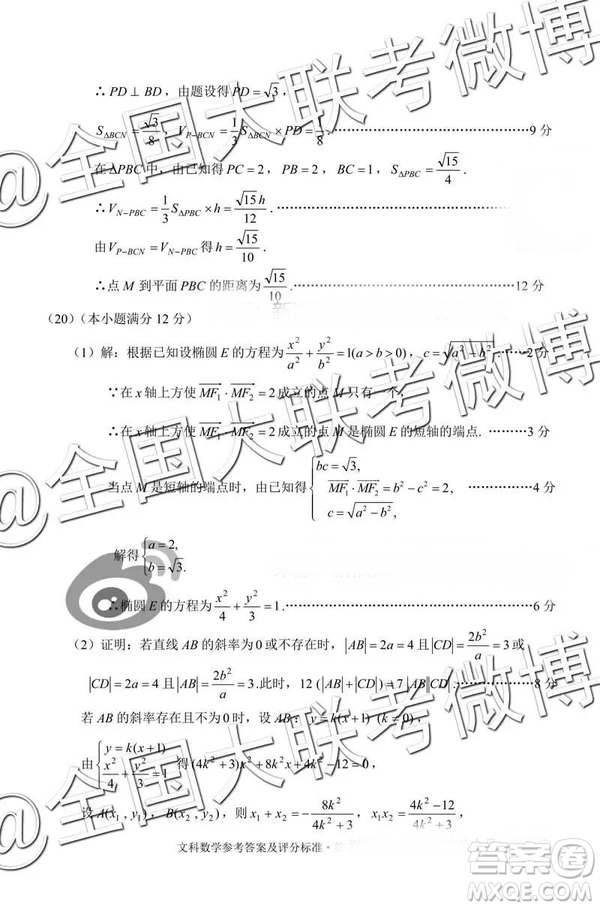 ∴PD⊥BD，由题设得PD=√3，
S_{ΔBCN}=√3/8，V_{P-BCN}=1/3 S_{ΔBCN}×PD=1/8.………………………………………9 分
在ΔPBC中，由已知得PC=2，PB=2，BC=1，S_{ΔPBC}=√15/4.
∴V_{N-PBC}=1/3 S_{ΔPBC}×h=√15h/12.………………………………………
由V_{P-BCN}=V_{N-PBC}得h=√15/10.
∴点 M 到平面 PBC 的距离为√15/10.………………………………………12 分
（20）（本小题满分 12 分）
（1）解：根据已知设椭圆 E 的方程为x²/a²+y²/b²=1(a>b>0)，c=√(a²−b²).………2 分
∵在 x 轴上方使MF₁·MF₂=2成立的点 M 只有一个，
∴在 x 轴上方使MF₁·MF₂=2成立的点 M 是椭圆 E 的短轴的端点. ………3 分
当点 M 是短轴的端点时，由已知得{bc=√3, MF₁·MF₂=b²−c²=2, c=√(a²−b²), ………………4 分
解得{a=2, b=√3.
∴椭圆 E 的方程为x²/4+y²/3=1.………………………………………6 分
（2）证明：若直线 AB 的斜率为 0 或不存在时，|AB|=2a=4且|CD|=2b²/a=3或
|CD|=2a=4且|AB|=2b²/a=3.此时，12 (|AB|+|CD|)=7|AB||CD|.………………8 分
若 AB 的斜率存在且不为 0 时，设 AB： y=k(x+1) (k≠0)，
由{y=k(x+1) x²/4+y²/3=1 得(4k²+3)x²+8k²x+4k²−12=0，
设A(x₁,y₁)，B(x₂,y₂)，则x₁+x₂=−8k²/(4k²+3)，x₁x₂=(4k²−12)/(4k²+3)，
文科数学参考答案及评分标准·第
@全国大联考微博
@全国大联考微博
@全国大联考微博
答案圈
MXQE.COM